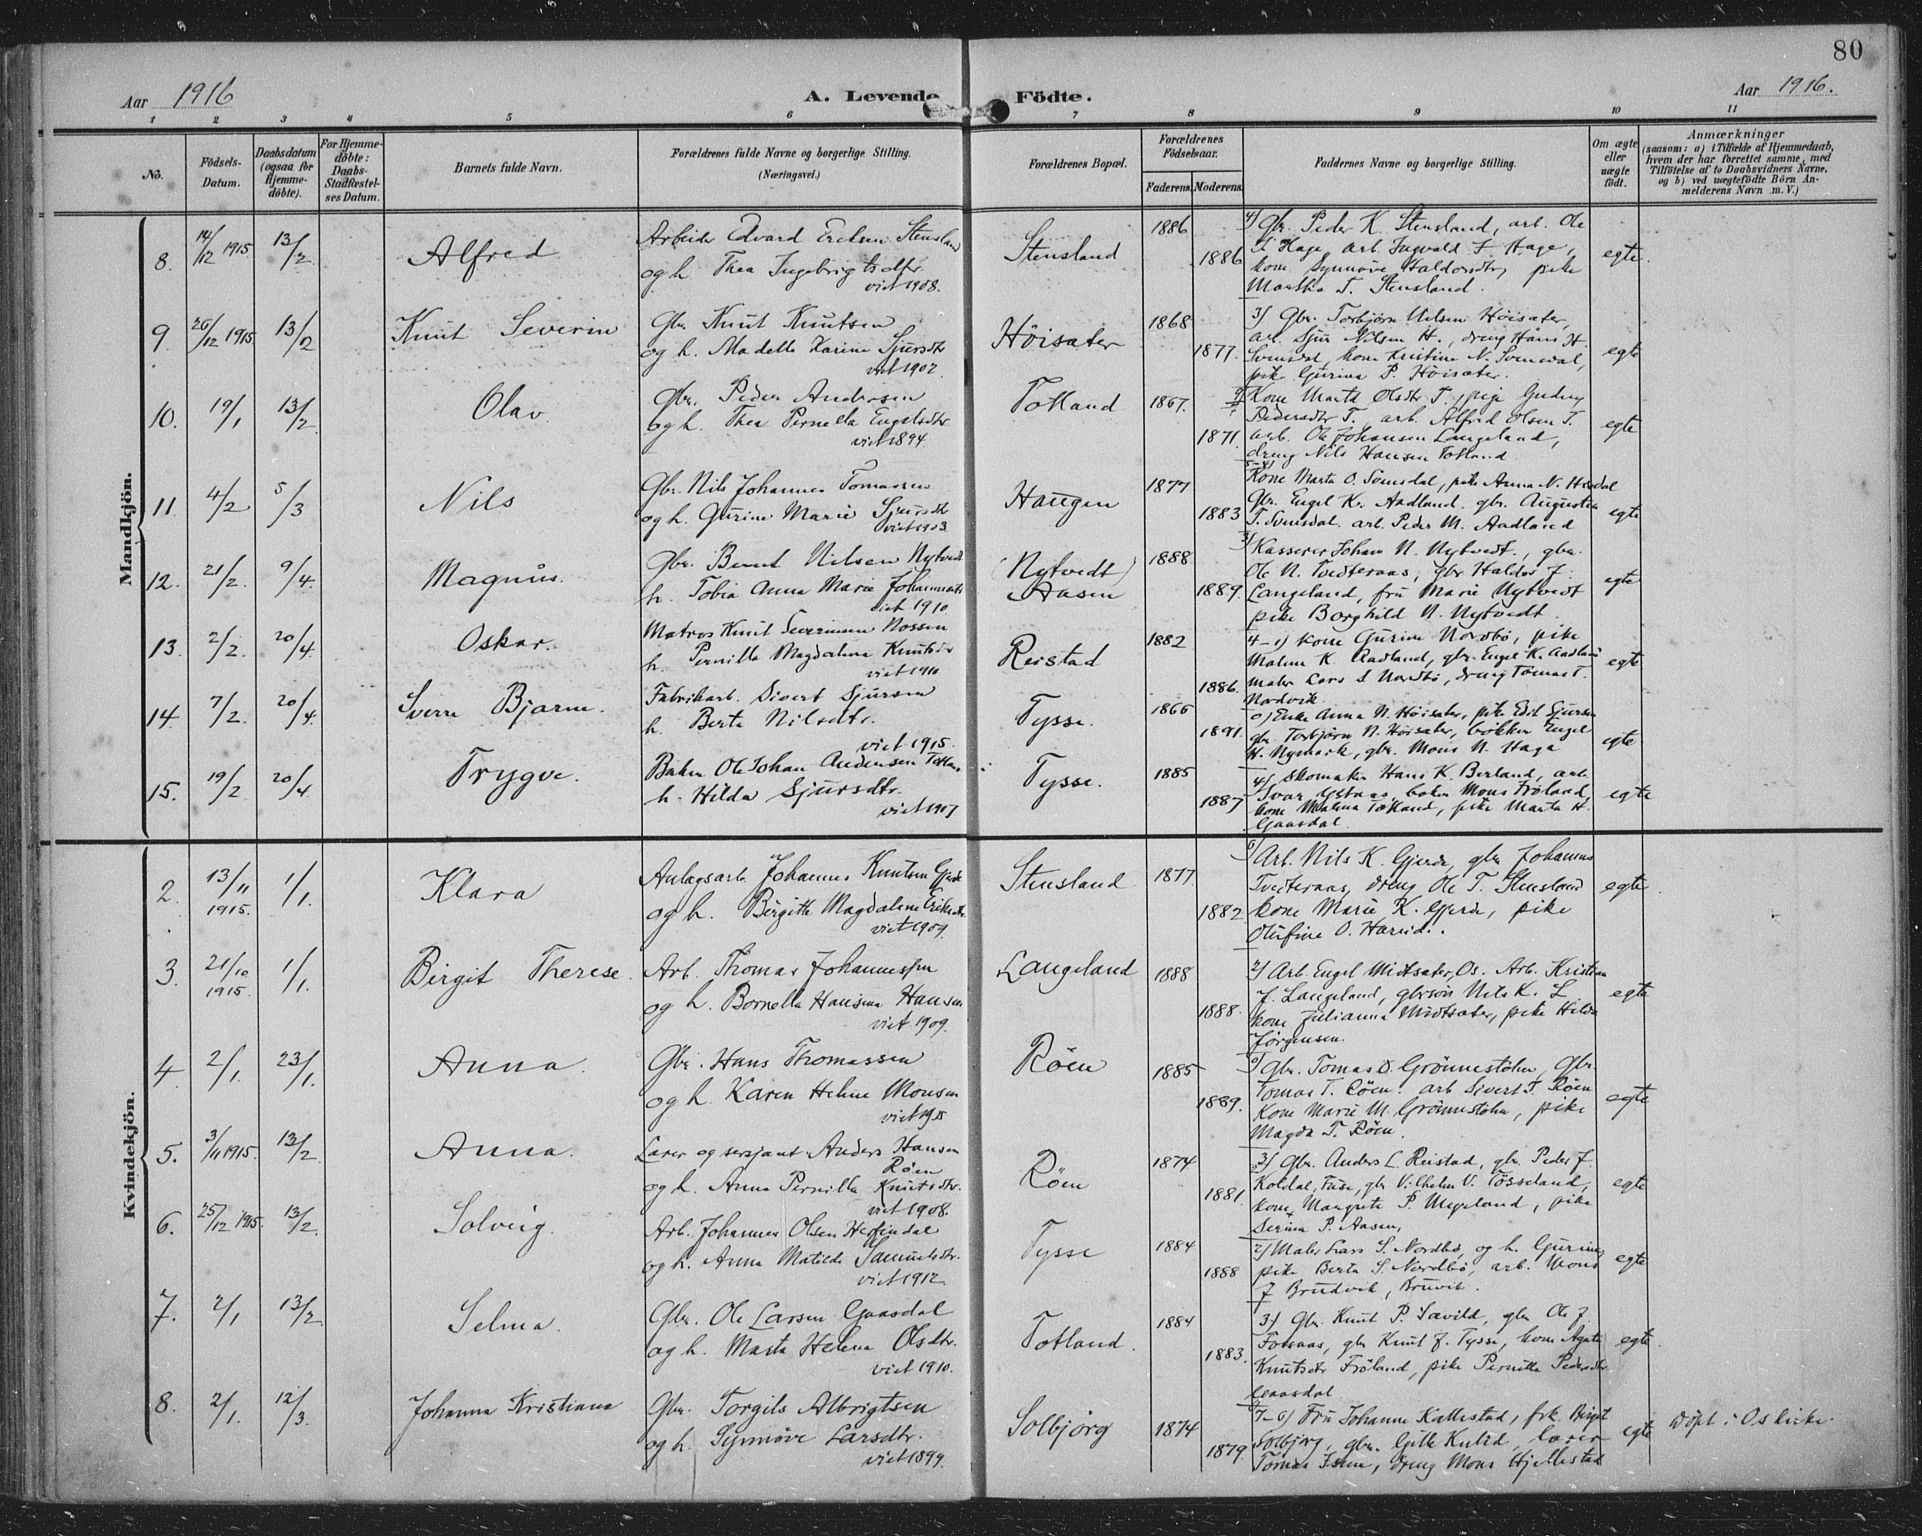 80
Aar 1916
A. Levende Födte.
Aar 1916.
1 2 3 4 5 6 7 8 9 10 11
No.
Födsels-Datum.
Daabsdatum (ogsaa för Hjemme-döbte).
For Hjemme-döbte: Daabs-Stadfæstel-ses Datum.
Barnets fulde Navn.
Forældrenes fulde Navne og borgerlige Stilling.
(Næringsvei.)
Forældrenes Bopæl.
Forældrenes Födselsaar.
Faderens. Moderens.
Faddernes Navne og borgerlige Stilling.
Om ægte eller uægte födt.
Anmærkninger
(saasom: a) i Tilfælde af Hjemmedaab, hvem der har forrettet samme, med Tilföielse af to Daabsvidners Navne, og b) ved uægtefödte Börn An-melderens Navn m. V.)
Mandkjön.
8. 14/12 1915 13/2 Alfred
Arbeider Edvard Eriksen Stensland
og h. Thea Ingebrigtsdtr
viet 1908.
Stensland 1886 1886
4) Gbr. Peder K. Stensland, arb. Ole
T. Hage, arb. Ingvald J. Hage,
kone Synnöve Haldorsdtr, pike
Martha T. Stensland.
egte.
9. 26/12 1915 13/2 Knut Severin
Gbr. Knut Knutsen
og h. Madella Karine Sjursdtr
viet 1902.
Höisæter 1868 1877.
3) Gbr. Torbjörn Nilsen Höisæter,
arb. Sjur Nilsen H., dreng Hans H.
Svensdal, kone Kristine N. Svensdal,
pike Gurina P. Höisæter.
egte
10. 19/1 13/2 Olav
Gbr. Peder Andersen
og h. Thea Pernella Engelsdtr
viet 1894.
Totland 1867. 1871.
Kone Marta Olsdtr T., pige Gudny
Pedersdtr T., arb. Alfred Olsen T.
arb. Ole Johansen Langeland,
dreng Nils Hansen Totland.
egte
11. 4/2 5/3 Nils
Gbr. Nils Johannes Tomassen
og h. Gurine Marie Sjursdtr
viet 1903.
Haugen 1877 1883
Kone Marta O. Svensdal, pike Anna N.
Gbr. Engel K. Aadland, gbr. Augustin
T. Svensdal. arb. Peder M. Aadland
egte
12. 21/2. 9/4. Magnus.
Gbr. Bernt Nilsen Nytvedt
h. Tobia Anna Marie Johannesdtr
viet 1910.
(Nytvedt)
Aasen 1888 1889.
3) Kasserer Johan N. Nytvedt., gbr.
Ole N. Tvedteraas, gbr Haldor J.
Langeland, fru Marie Nytvedt
pike Borghild N. Nytvedt.
egte
13. 2/2. 20/4. Oskar.
Matros Knut Severinsen Mossen
h. Pernilla Magdalena Knutsdtr
viet 1911
Reistad 1882 1886.
4-1) kone Gurine Nordbö, pike
Malene K. Aadland, gbr. Engel K. Aadland
maler Lars S Nordbö, dreng Tomas T.
Nordvik.
egte
14. 7/2. 20/4. Sverre Bjarne.
Fabrikarb. Sivert Sjursen
h. Berta Nilsdtr.
viet 1915.
Tysse. 1866 1891.
0) Enke Anna N. Höisæter, pike Edit Sjursen
gbr. Torbjörn N. Höisæter, bökker Engel
H. Nymark, gbr. Mons N. Haga
egte
15. 19/2 20/4 Trygve.
Baker Ole Johan Andersen Totland
h. Hilda Sjursdtr.
viet 1907
Tysse. 1885 1887
4) Skomaker Hans K. Berland, arb.
Ivar, baker Mons Fröland,
kone Malena Totland, pike Marta H.
Gaasdal.
egte
Kvindekjön.
2. 13/11 1915. 1/1. Klara
Anlægsarb. Johannes Knutsen Gjerde
og h. Birgitte Magdalene Eriksdtr.
viet 1909.
Stensland 1877 1882
Arb. Nils K. Gjerde, gbr Johannes
Tvedteraas, dreng Ole T. Stensland
kone Marie K. Gjerde, pike
Olufine O. Hareid.
egte.
3. 21/10 1915. 1/1. Birgit Therese.
Arb. Thomas Johannessen
og h. Bornella Hansina Hansen
viet 1909.
Langeland 1888 1888.
2) Arb. Engel Midtsæter, Os. Arb. Kristian
J. Langeland, gbrsön Nils K. L
kone Julianna Midtsæter, pike Hilda
Jörgensen.
egte
4. 2/1. 23/1. Anna.
Gbr. Hans Thomassen
og h. Karen Helene Monsen
viet 1915
Röen 1885 1889.
0) Gbr. Tomas O. Grönnestölen, Gbr.
Tomas T. Röen. arb Sivert T. Röen
Kone Marie M. Grönnestölen, pike
Magda T. Röen.
egte
5. 3/11 1915. 13/2. Anna.
Lærer og sersjant Anders Hansen
Röen
og h. Anna Pernilla Knutsdtr.
viet 1908.
Röen 1874 1881
3) Gbr. Anders L. Reistad, gbr. Peder J.
Koldal, Fuse, gbr Vilhelm V. Tösseland,
kone Margrete P. Megeland, pike
Serina P. Aasen,
egte
6. 25/12 1915. 13/2. Solveig.
Arb. Johannes Olsen Heffendal
og h. Anna Matilde Samuelsdtr.
viet 1912.
Tysse 1884 1888
2) Maler Lars S. Nordbö, og h. Gurine,
pike Berta S. Nordbö, arb. Mons
J Brudvik, Bruvik.
egte
7. 2/1 13/2. Selma.
Gbr. Ole Larsen Gaasdal
og h. Marta Helena Olsdtr.
viet 1910.
Totland. 1884 1883.
3) Gbr. Knut P. Sævild, gbr Ole J
Forsaas, gbr Knut J. Tysse, kone Agata
Knutsdtr Fröland, pike Pernilla Pedersdtr
Gaasdal.
egte.
8. 2/1. 12/3. Johanna Kristiana
Gbr. Torgils Albrigtsen
og h. Synnöve Larsdtr.
viet 1899.
Solbjörg 1874 1879.
7-6) Fru Johanne Kallestad, frk. Birgit
Solbjörg, gbr. Gitle Kulid, lærer
Tomas, dreng Mons Hjellestad
egte
Döpt i Os kirke.